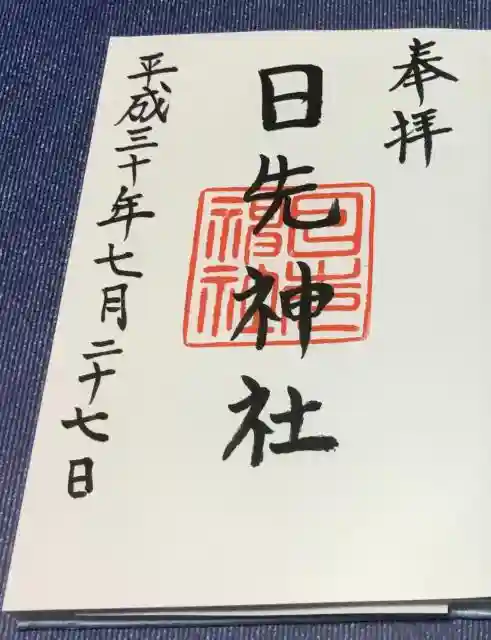 奉拝
日先神社
日先神社
平成三十年七月二十七日